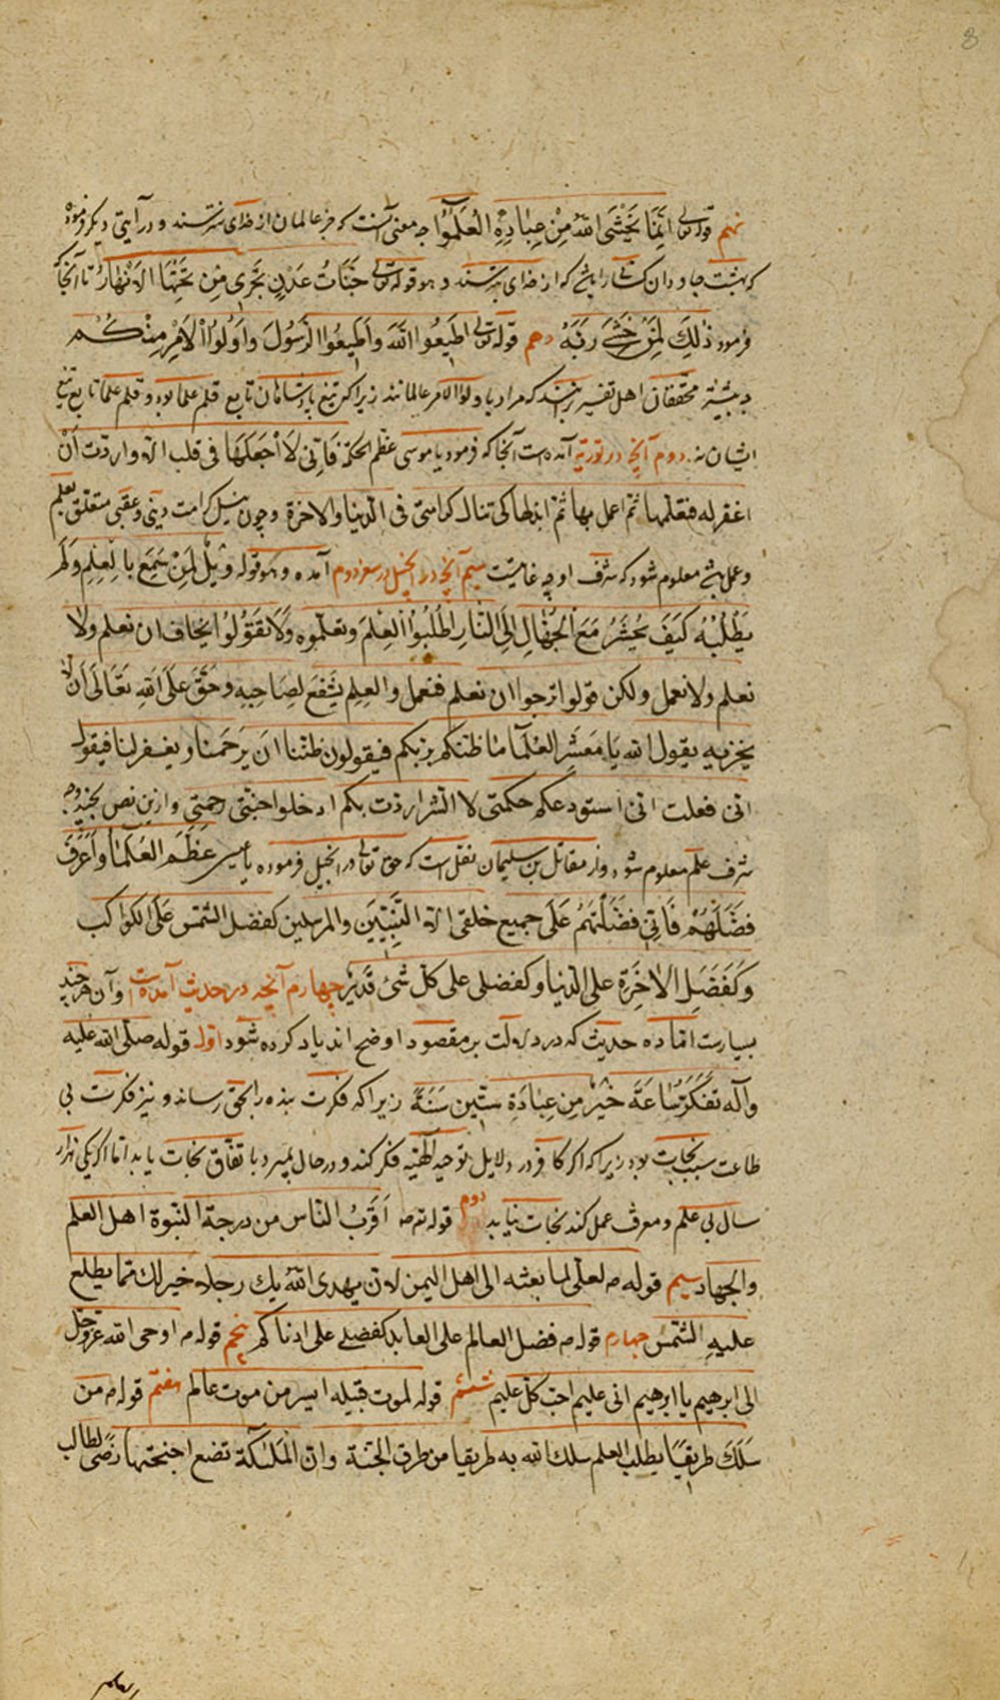 8
نهم قوله تعالی اِنَّمَا یَخْشَی اللهَ مِنْ عِبَادِهِ الْعُلَمٰٓؤُا چه معنی آنست که جز عالمان از خدای نترسند و در آیتی دیگر فرموده
که بهشت جاودان کسی را باشد که از خدای بترسند و هو قوله تعالی جَنَّاتُ عَدْنٍ تَجْرِی مِن تَحْتِهَا الْاَنْهَارُ تا آنجا که
فرمود ذٰلِکَ لِمَنْ خَشِیَ رَبَّهُ دهم قوله تعالی اَطِیعُوا اللّٰهَ وَاَطِیعُوا الرَّسُولَ وَاُولُوا الْاَمْرِ مِنْکُمْ
چه بیشتر محققان اهل تفسیر برانند که مراد باولوا الامر عالمانند زیرا که تیغ پادشاهان تابع قلم علما بود و قلم علما تابع تیغ
ایشان نه دوم آنچه در توریة آمده است آنجا که فرمود یا موسی عظّم الحکمة فَاِنّی لَا اَجْعَلُهَا فی قلب الا واردت اَنْ
اغفر له فتعلّمها ثم اعمل بها ثم ابذلها کی تنال کرامتی فی الدنیا والاخرة و چون نیل کرامت دینی و عقبی متعلق بعلم
و عمل باشد معلوم شود که شرف او چه غایتست سیم آنچه در انجیل در سفر دوم آمده و هو قوله وَیْلٌ لِمَنْ سَمِعَ بِالْعِلْمِ وَلَمْ
یَطْلُبْهُ کَیْفَ یُحْشَرُ مَعَ الْجُهَّالِ اِلَی النَّارِ اُطْلُبُوا الْعِلْمَ وتعلّموه وَلَا تَقُولُوا نخاف ان نعلم ولا
نعلم ولا نعمل ولکن قولوا نرجوا ان نعلم فنعمل والعِلم یَشْفَعُ لِصَاحِبِهِ وَحَقٌّ عَلَی اللهِ تَعَالَی اَن لَا
یخزیه یقول الله یَا مَعْشَرَ الْعُلَمَآءِ ما ظنکم بربکم فیقولون ظنّنا اَن یَرْحَمَنَا ویغفر لنا فیقول
انی فعلت انی استودعتکم حکمتی لا لشر اردت بکم ادخلوا جنتی برحمتی و ازین نص بچند وجه
شرف علم معلوم شود و از مقاتل بن سلیمان نقل است که حق تعالی در انجیل فرموده یا عیسی عَظِّمِ الْعُلَمَاءَ وَاعْرِفْ
فَضْلَهُمْ فَاِنّی فَضَّلْتُهُمْ عَلَی جمیع خلقی الا النَّبِیّینَ والمرسلین کفضل الشمس عَلَی الکواکب
وَکَفَضْلِ الْاٰخِرَةِ علی الدنیا و کفضلی علی کل شئ قدیر چهارم آنچه در حدیث آمده است و آن هر چند
بسیارست اما ده حدیث که در دلالت بر مقصود اوضح اند یاد کرده شود اول قوله صلی الله علیه
وآله تَفَکُّرُ سَاعَةٍ خَیْرٌ مِن عِبَادَةِ سِتِّینَ سَنَةً زیرا که فکرت بنده را بحق رساند و نیز فکرت بی
طاعت سبب نجات بود زیرا که اگر کافر در دلایل توحید الهیّه فکر کند و در حال بمیرد باتفاق نجات یابد اما اگر یکی هزار
سال بی علم و معرفت عمل کند نجات نیابد دوم قوله ص اَقْرَبُ النَّاس من درجة النبوة اهل العلم
والجهاد سیم قوله ص لعلی لما بعثه الی اهل الیمن لان یهدی الله بك رجلا خیر لك مما یطلع
علیه الشمس چهارم قوله ص فضل العالم علی العابد کفضلی علی ادناکم پنجم قوله ص اوحی الله عزوجل
الی ابرهیم یا ابرهیم انی علیم احب کل علیم ششم قوله لموت قبیله ایسر من موت عالم هفتم قوله ص من
سَلَكَ طریقًا یطلب العلم سلك الله به طریقا من طرق الجنة وان الملئکة تضع اجنحتها رضًی لطالب
العلم